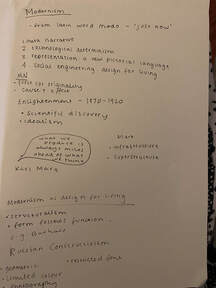 Modernism
- from latin word modo - 'just now'
1. mark narrative
2. technological determinism
3. representation a new pictorial language
4. social engineering, design for living
MN
- for originality
- cause + effect
Enlightenment - 1870-1920
• scientific discovery
• idealism
what we produce is always miles ahead of what we think
Karl Marx
Marx
• infrastructure
• superstructure
Modernism as design for living
• structuralism
• form follows function
e.g Bauhaus
Russian Constructivism
• geometric
• restricted font
• limited colour
• photography